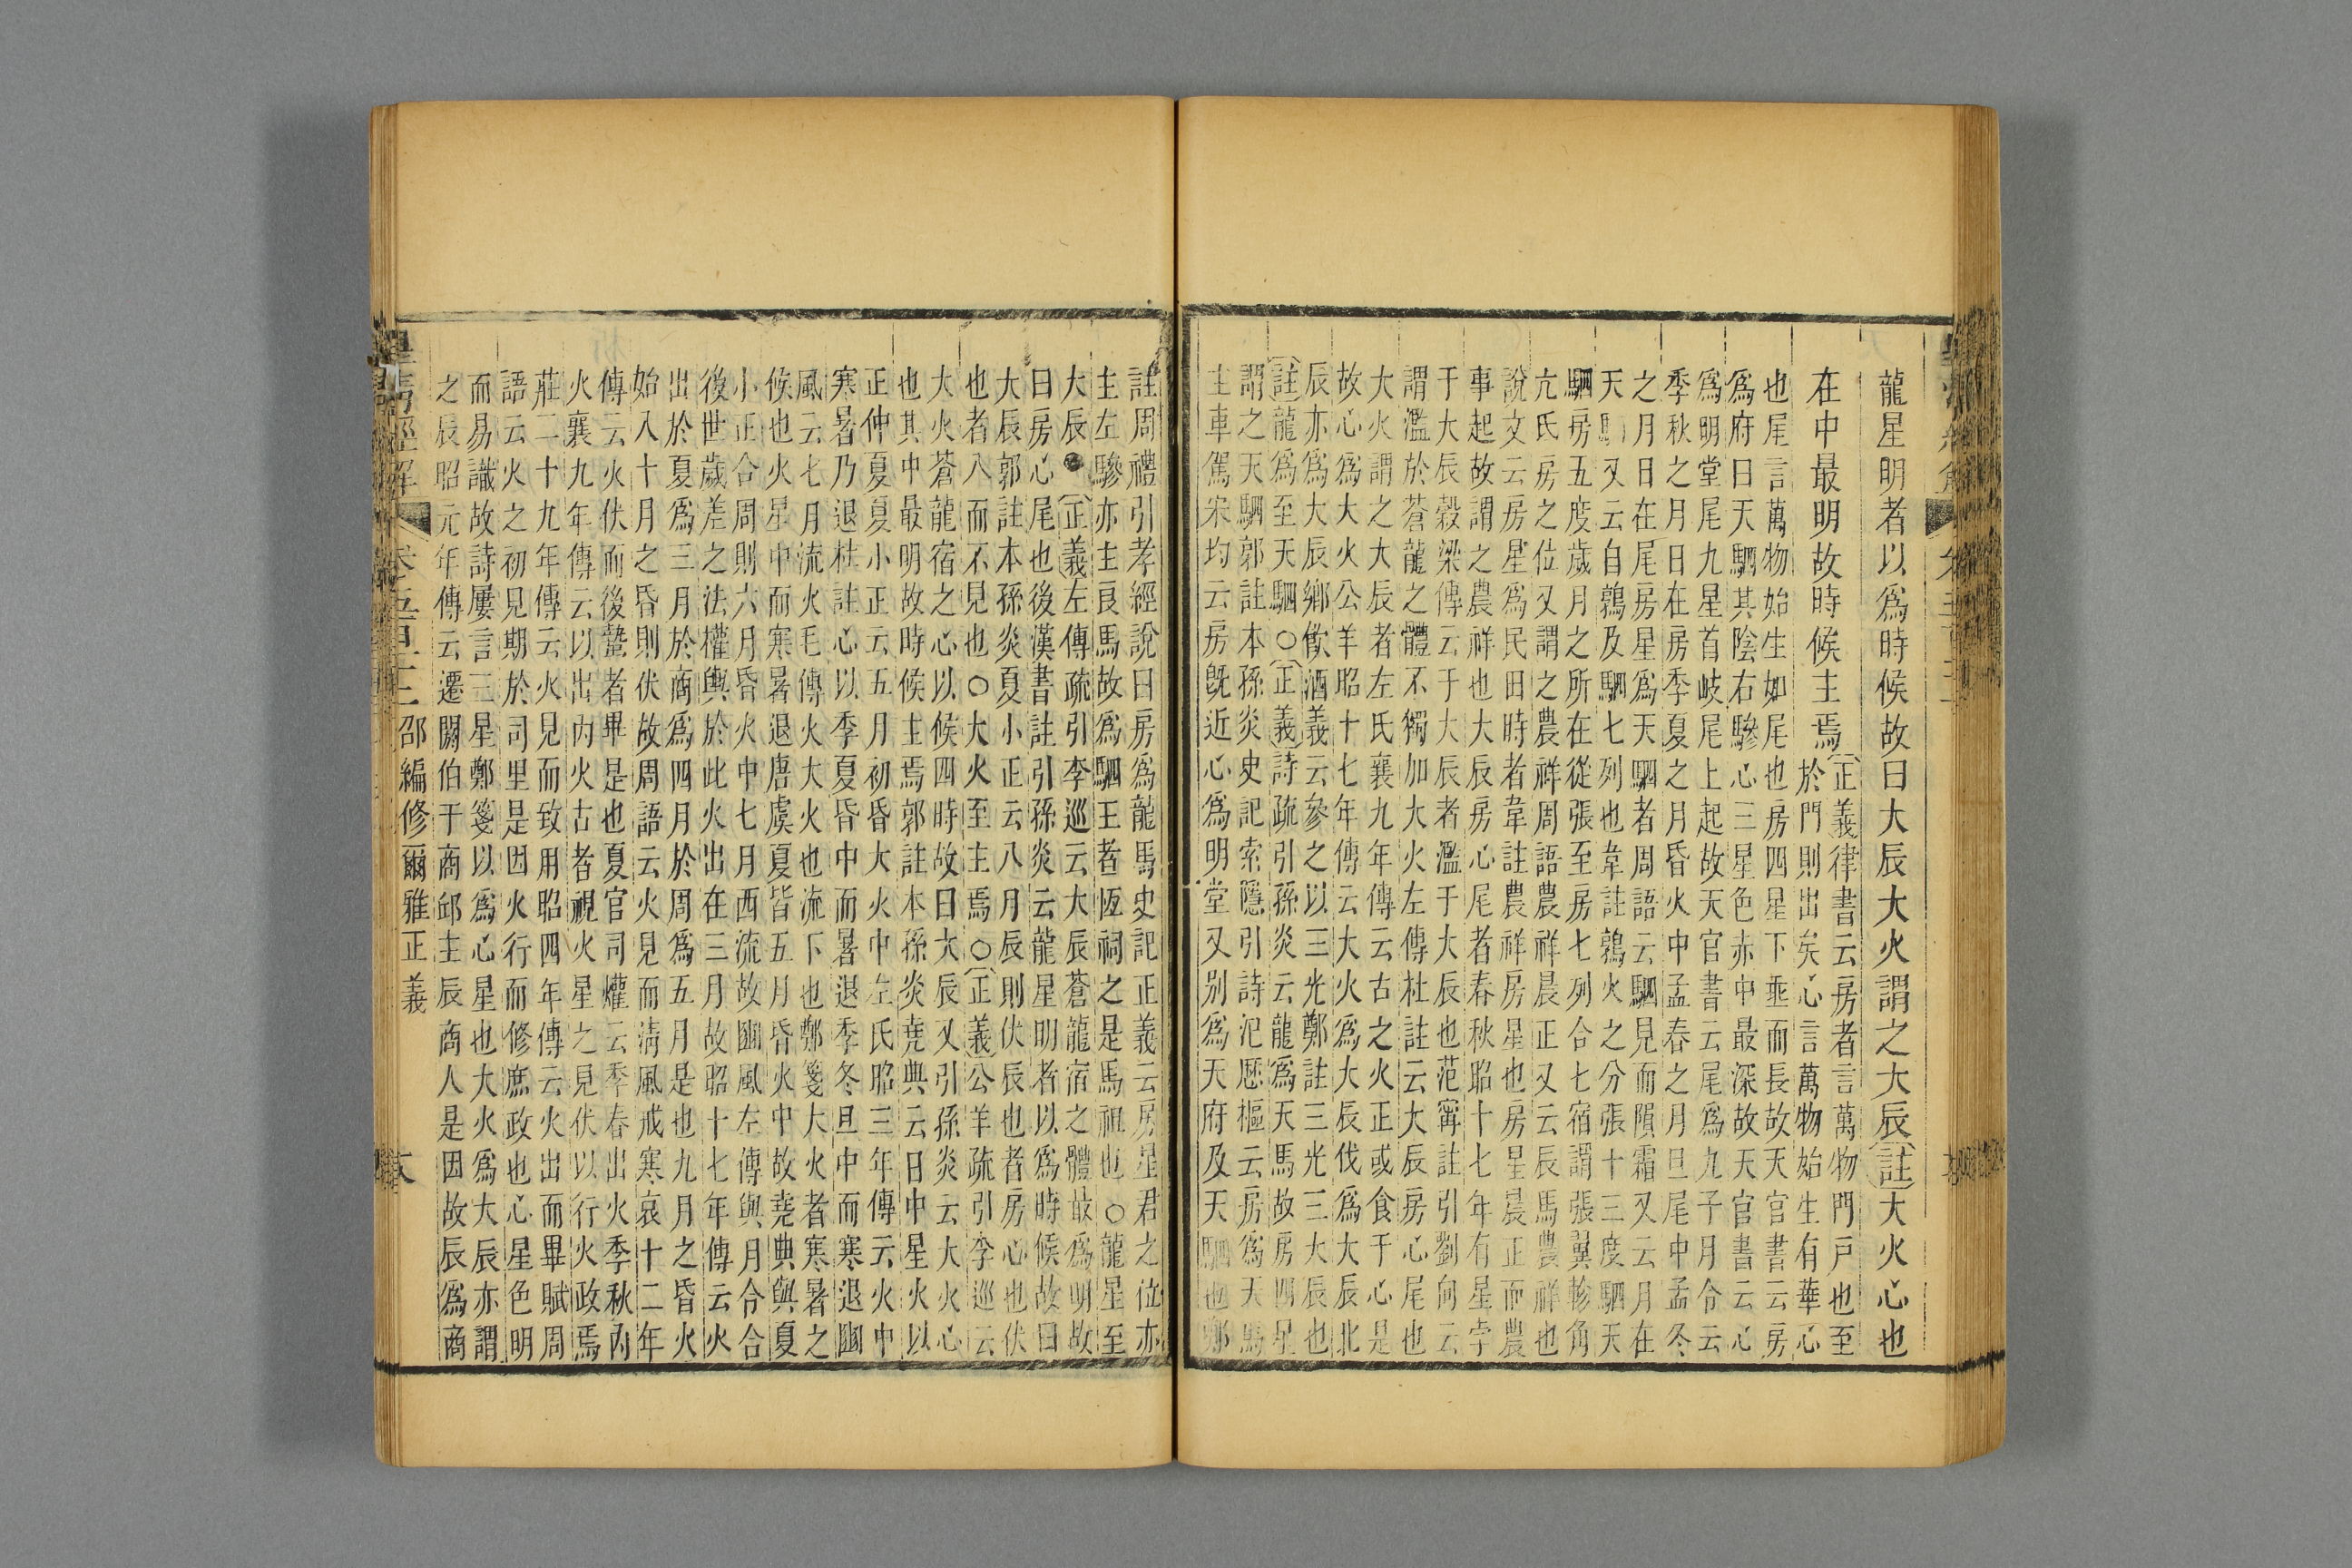 龍星明者以爲時候故曰大辰大火謂之大辰註大火心也
在中最明故時候主焉正義律書云房者言萬物門戸也至
於門則出矣心言萬物始生有華心
也尾言萬物始生如尾也房四星下垂而長故天官書云房
爲府曰天駟其陰右驂心三星色赤中最深故天官書云心
爲明堂尾九星首岐尾上起故天官書云尾爲九子月令云
季秋之月日在房季夏之月昏火中孟春之月旦尾中孟冬
之月日在尾房星爲天駟者周語云駟見而隕霜又云月在
天駟又云自鶉及駟七列也韋註鶉火之分張十三度駟天
駟房五度歲月之所在從張至房七列合七宿謂張翼軫角
亢氐房之位又謂之農祥周語農祥晨正又云辰馬農祥也
說文云房星爲民田時者韋註農祥房星也房星晨正而農
事起故謂之農祥也大辰房心尾者春秋昭十七年有星孛
于大辰穀梁傳云于大辰者濫于大辰也范甯註引劉向云
謂濫於蒼龍之體不獨加大火左傳杜註云大辰房心尾也
大火謂之大辰者左氏襄九年傳云古之火正或食于心是
故心爲大火公羊昭十七年傳云大火爲大辰伐爲大辰北
辰亦爲大辰鄉飮酒義云參之以三光鄭註三光三大辰也
註龍爲至天駟○正義詩疏引孫炎云龍爲天馬故房四星
謂之天駟郭註本孫炎史記索隱引詩汜歷樞云房爲天馬
主車駕宋均云房旣近心爲明堂又別爲天府及天駟也鄭
註周禮引孝經說曰房爲龍馬史記正義云房星君之位亦
主左驂亦主良馬故爲駟王者恆祠之是馬祖也○龍星至
大辰●正義左傳疏引李巡云大辰蒼龍宿之體最爲明故
曰房心尾也後漢書註引孫炎云龍星明者以爲時候故曰
大辰郭註本孫炎夏小正云八月辰則伏辰也者房心也伏
也者八而不見也○大火至主焉○正義公羊疏引李巡云
大火蒼龍宿之心以候四時故曰大辰又引孫炎云大火心
也其中最明故時候主焉郭註本孫炎堯典云日中星火以
正仲夏夏小正云五月初昏大火中左氏昭三年傳云火中
寒暑乃退杜註心以季夏昏中而暑退季冬旦中而寒退豳
風云七月流火毛傳火大火也流下也鄭箋大火者寒暑之
候也火星中而寒暑退唐虞夏皆五月昏火中故堯典與夏
小正合周則六月昏火中七月西流故豳風左傳與月令合
後世歲差之法權輿於此火出在三月故昭十七年傳云火
出於夏爲三月於商爲四月於周爲五月是也九月之昏火
始入十月之昏則伏故周語云火見而淸風戒寒哀十二年
傳云火伏而後蟄者畢是也夏官司爟云季春出火季秋內
火襄九年傳云以出內火古者視火星之見伏以行火政焉
莊二十九年傳云火見而致用昭四年傳云火出而畢賦周
語云火之初見期於司里是因火行而修庶政也心星色明
而易識故詩屢言三星鄭箋以爲心星也大火爲大辰亦謂
之辰昭元年傳云遷閼伯于商邱主辰商人是因故辰爲商
皇淸經解 卷五百十三 邵編修爾雅正義